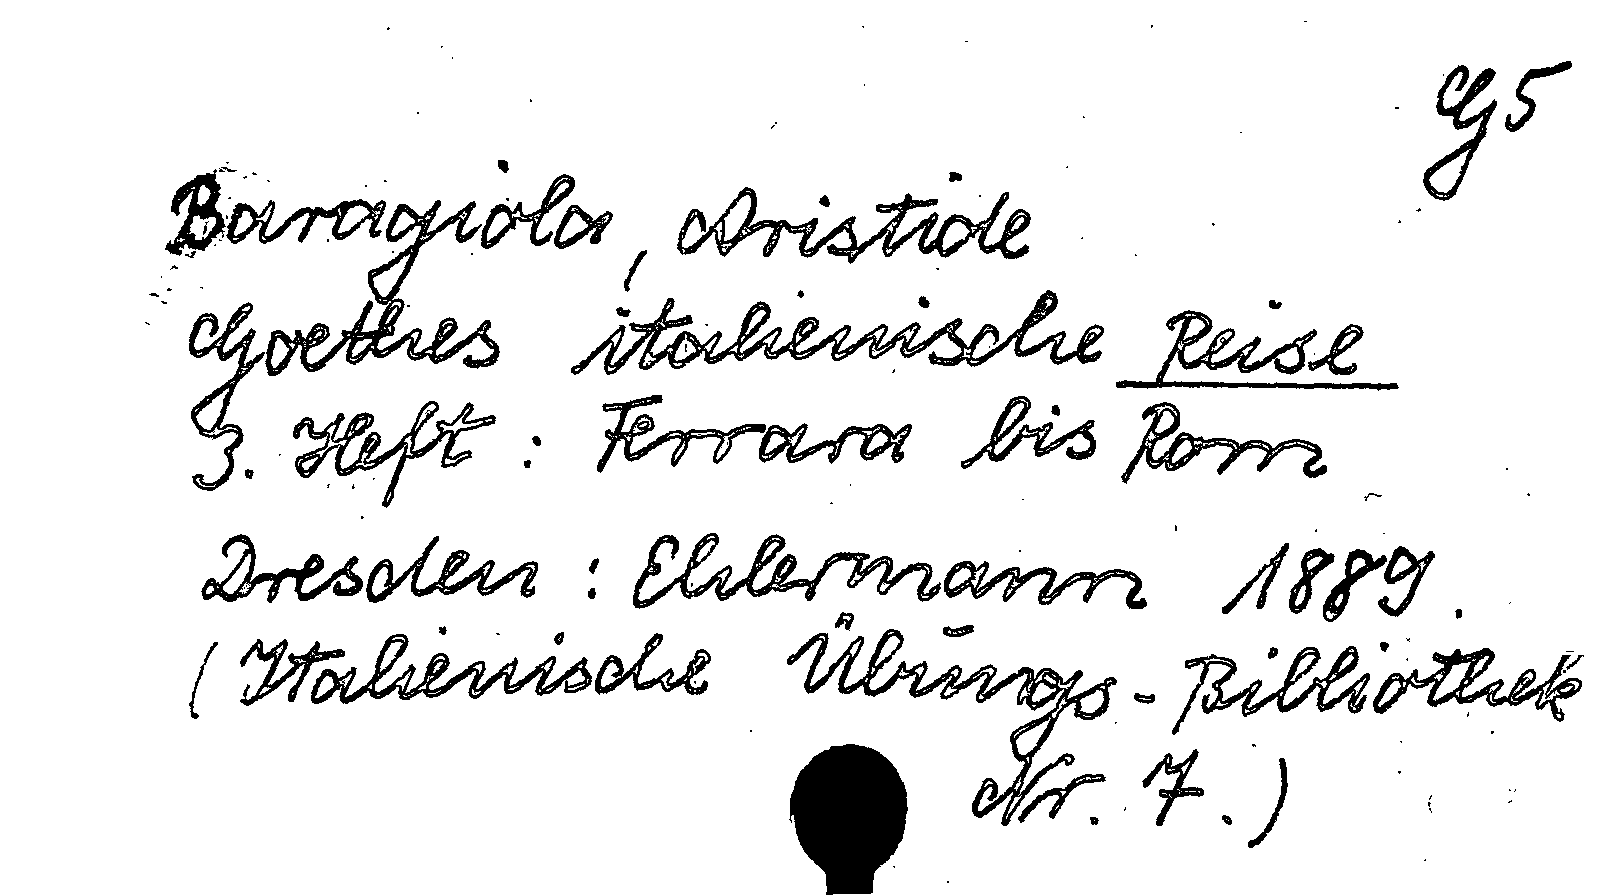 G5
Baragiola, Aristide
Goethes italienische Reise
3. Heft : Ferrara bis Rom
Dresden : Ehlermann 1889.
(Italienische Übungs-Bibliothek
Nr. 7.)